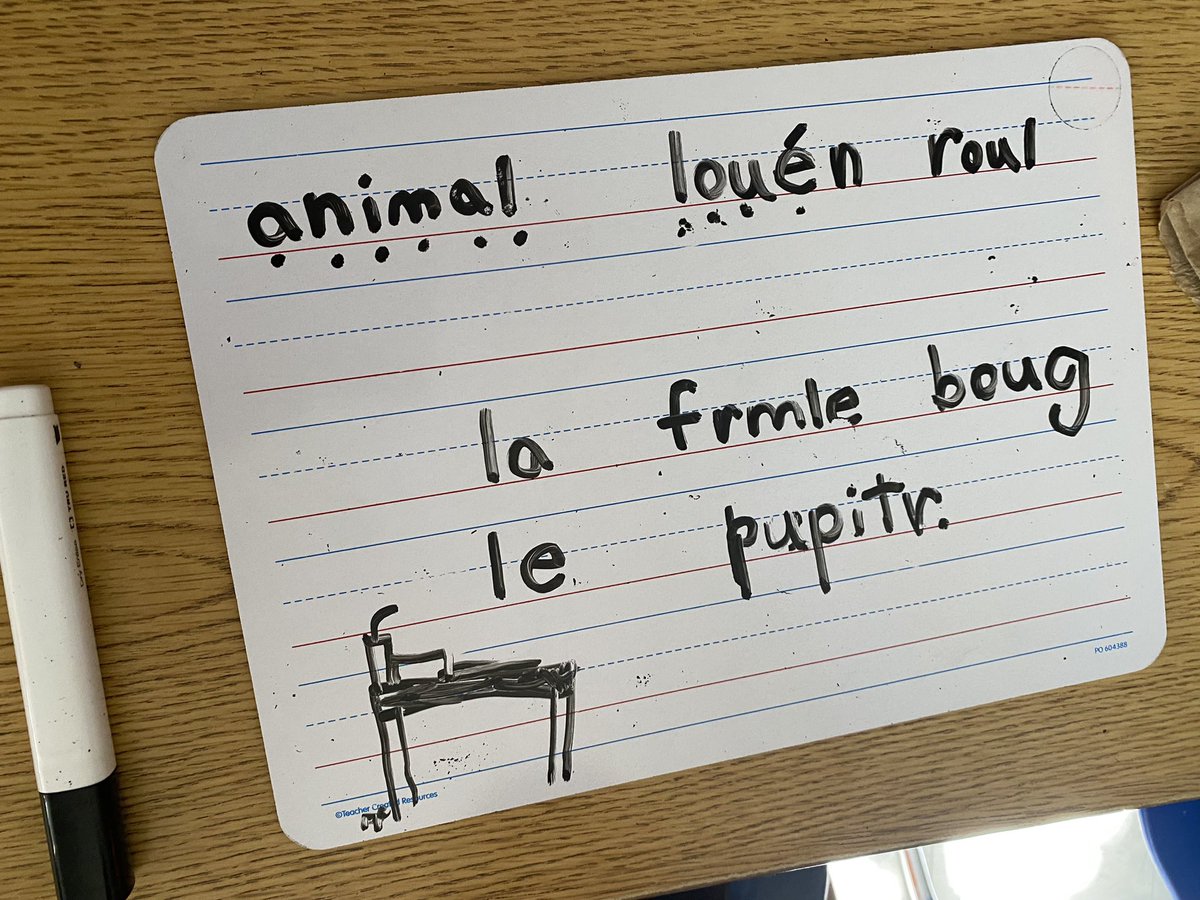 animal louén roul
la frmle boug
le pupitr.
PO 604388
©Teacher Created Resources